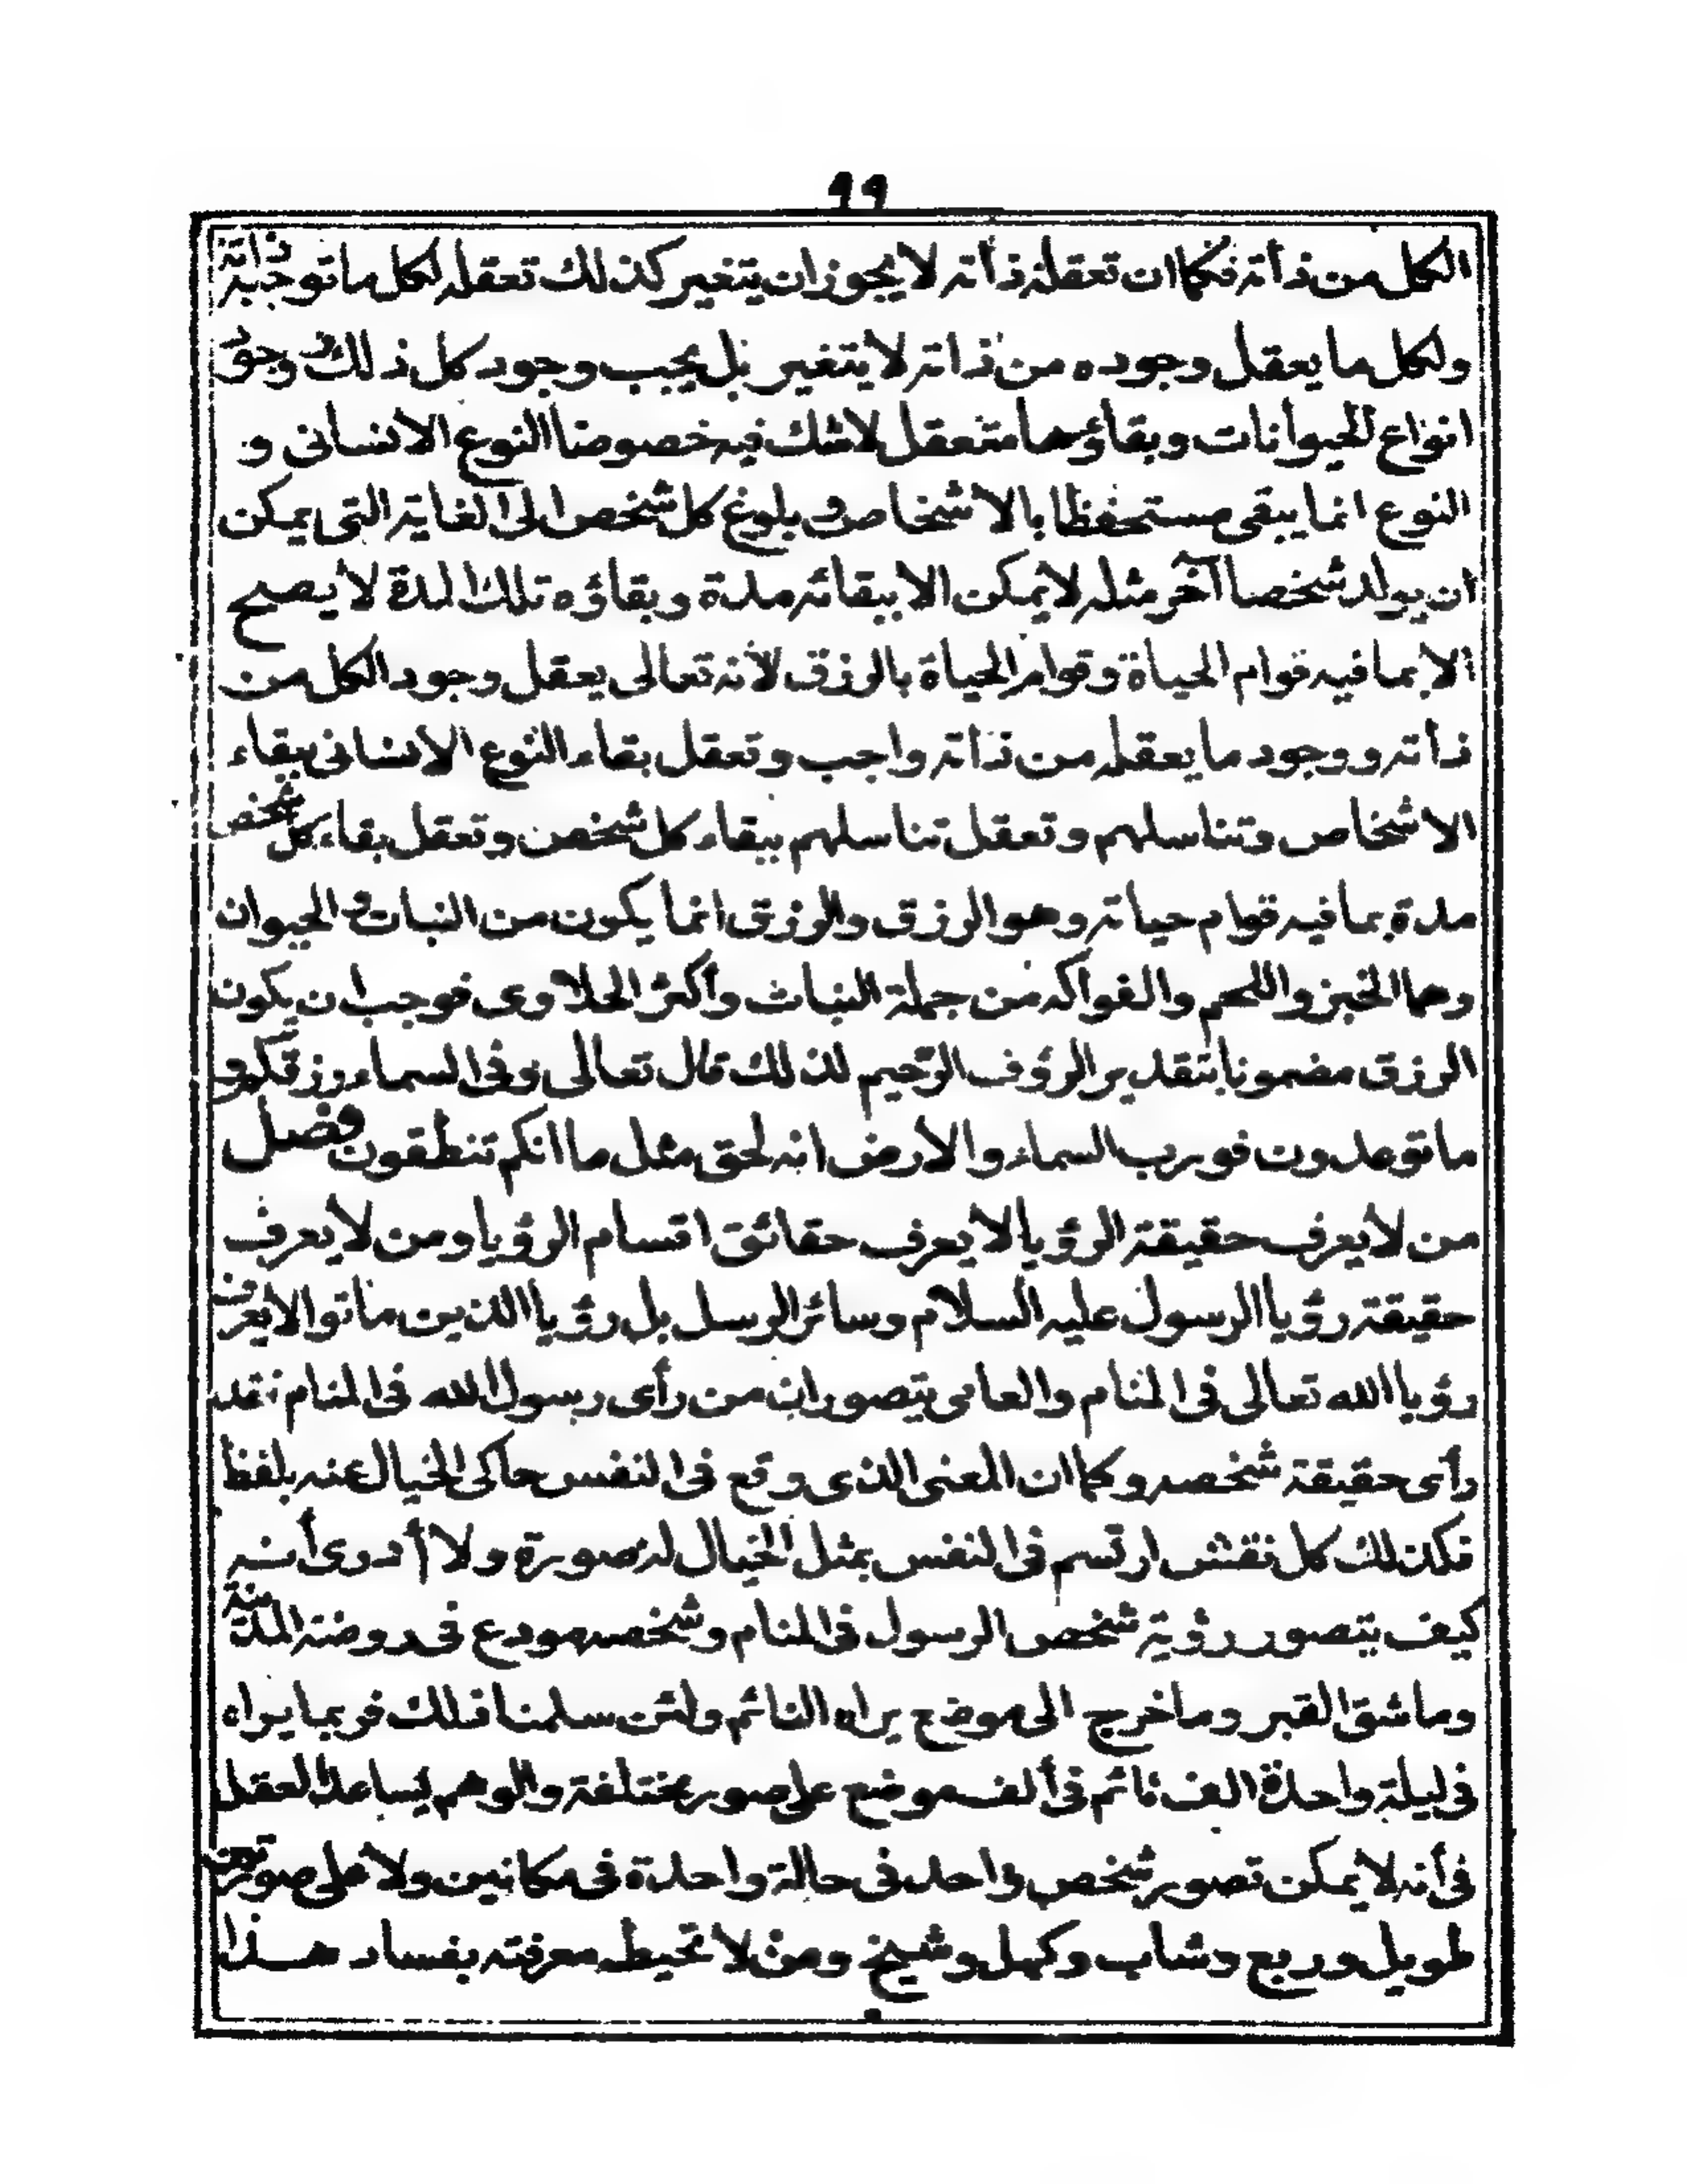 ٩٩
الكل من ذأته فكما ان تعقله ذأته لا يجوز ان يتغير كذلك تعقله لكل ما توجبه ذاته
ولكل ما يعقل وجوده من ذاته لا يتغير بل يجب وجود كل ذلك ووجود
انواع الحيوأنات وبقاؤها متعقل لاشك فيه خصوصا النوع الانسانى و
النوع انما يبقى مستحفظا بالاشخاص وبلوغ كل شخص الى الغاية التى يمكن
ان يولد شخصا آخر مثله لا يمكن الا ببقائه مدة وبقاؤه تلك المدة لا يصح
الا بما فيه قوام الحياة وقوام الحياة بالرزق لأنه تعالى يعقل وجود الكل من
ذأته ووجود ما يعقله من ذاته واجب وتعقل بقاء النوع الانسانى ببقاء
الاشخاص وتناسلهم وتعقل تناسلهم ببقاء كل شخص وتعقل بقاء كل شخص
مدة بما فيه قوام حياته وهو الرزق والرزق انما يكون من النبات والحيوان
وهما الخبز واللحم والفواكه من جملة النبات وأكثر الحلاوى فوجب ان يكون
الرزق مضمونا بتقدير الرؤف الرحيم لذلك قال تعالى وفى السماء رزقكم و
ما توعدون فورب السماء والأرض انه لحق مثل ما انكم تنطقون فصل
من لا يعرف حقيقة الرؤيا لا يعرف حقائق اقسام الرؤيا ومن لا يعرف
حقيقة رؤيا الرسول عليه السلام وسائر الرسل بل رؤيا الذين ماتوا لا يعرف
رؤيا الله تعالى فى المنام والعامى يتصور ان من رأى رسول الله فى المنام فقد
رأى حقيقة شخصه وكما ان المعنى الذى وقع فى النفس حاكى الخيال عنه بلفظ
فكذلك كل نقش ارتسم فى النفس يمثل الخيال له صورة ولا أدرى أنه
كيف يتصور رؤية شخص الرسول فى المنام وشخصه مودع فى روضة المدينة
وما شق القبر وما خرج الى موضع يراه النائم ولئن سلمنا ذلك فربما يراه
فى ليلة واحدة الف نائم فى ألف موضع على صور مختلفة والوهم يساعد العقل
فى أنه لا يمكن تصور شخص واحد فى حالة واحدة فى مكانين ولا على صورتين
طويل وربع وشاب وكهل وشيخ ومن لا تحيط معرفته بفساد هذا